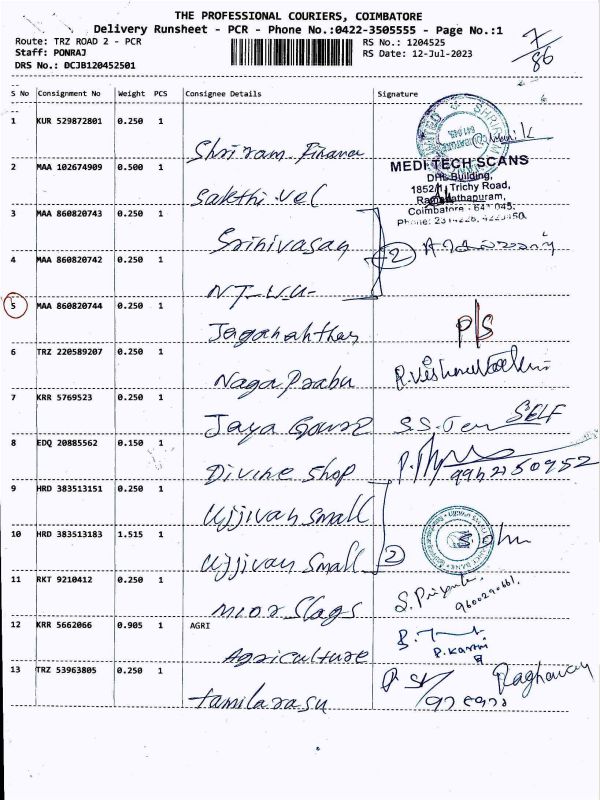 THE PROFESSIONAL COURIERS, COIMBATORE
Delivery Runsheet - PCR - Phone No.:0422-3505555 - Page No.:1
Route: TRZ ROAD 2 - PCR
RS No.: 1204525
Staff: PONRAJ
RS Date: 12-Jul-2023
DRS No.: DCJB120452501
7/86
S No Consignment No Weight PCS Consignee Details Signature
1 KUR 529872801 0.250 1
Shriram Finance
MEDI TECH SCANS
2 MAA 102674909 0.500 1
DHL Building,
1852/1, Trichy Road,
Sakthi vel
Ramanathapuram,
Coimbatore - 641 045.
3 MAA 860820743 0.250 1
Srinivasan
2
4 MAA 860820742 0.250 1
5 MAA 860820744 0.250 1
P/S
Jaganathan
6 TRZ 220589207 0.250 1
Naga Prabu
7 KRR 5769523 0.250 1
SELF
8 EDQ 20885562 0.150 1
Divine Shop
9 HRD 383513151 0.250 1
Ujjivan Small
10 HRD 383513183 1.515 1
2
Ujjivan Small
11 RKT 9210412 0.250 1
S. Priya
12 KRR 5662066 0.905 1 AGRI
Agriculture
13 TRZ 53963805 0.250 1
Raghavan
tamilarasu